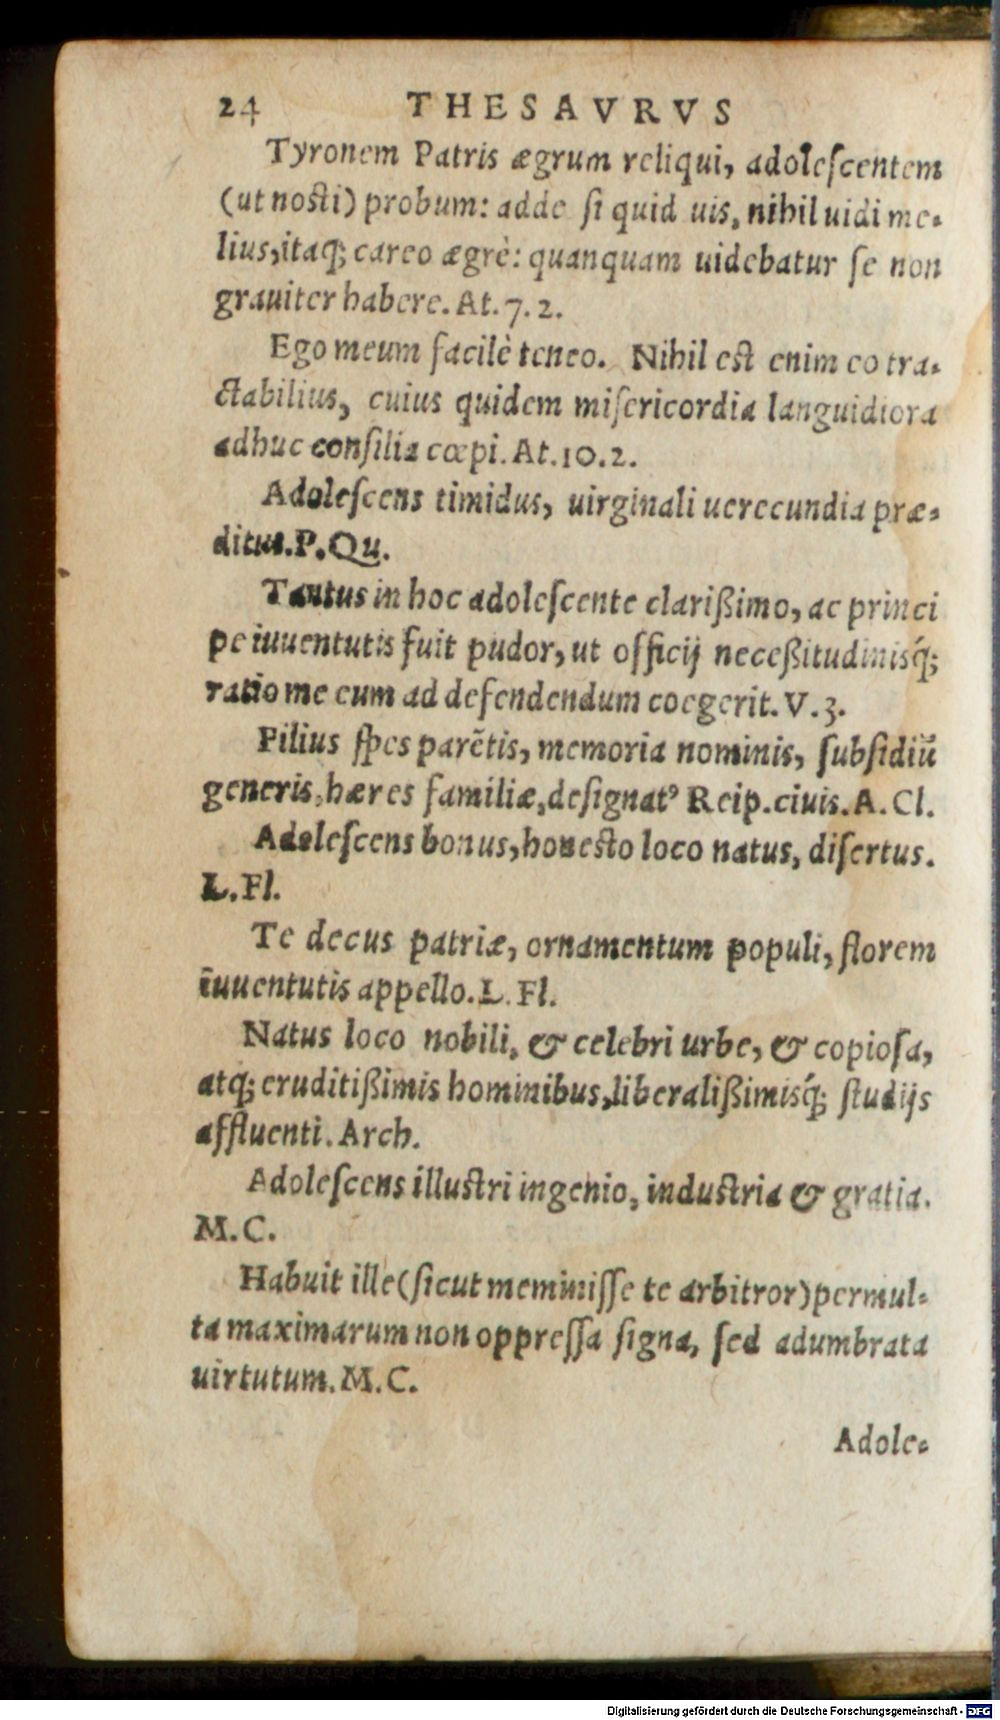 24 THESAVRVS
Tyronem Patris ægrum reliqui, adoleſcentem
(ut noſti) probum: adde ſi quid uis, nihil uidi me-
lius, itaq; careo ægrè: quanquam uidebatur ſe non
grauiter habere. At. 7. 2.
Ego meum facilè teneo. Nihil eſt enim eo tra-
ctabilius, cuius quidem miſericordia languidiora
adhuc conſilia cœpi. At. 10. 2.
Adoleſcens timidus, uirginali uerecundia præ-
ditus. P. Qu.
Tautus in hoc adoleſcente clarißimo, ac princi
pe iuuentutis fuit pudor, ut officij neceßitudinisq́;
ratio me eum ad defendendum coegerit. V. 3.
Filius ſpes parẽtis, memoria nominis, ſubſidiũ
generis, hæres familiæ, deſignatꝰ Reip. ciuis. A. Cl.
Adoleſcens bonus, honeſto loco natus, diſertus.
L. Fl.
Te decus patriæ, ornamentum populi, florem
iuuentutis appello. L. Fl.
Natus loco nobili, & celebri urbe, & copioſa,
atq; eruditißimis hominibus, liberalißimisq́; ſtudijs
affluenti. Arch.
Adoleſcens illuſtri ingenio, induſtria & gratia.
M. C.
Habuit ille (ſicut meminiſſe te arbitror) permul-
ta maximarum non oppreſſa ſigna, ſed adumbrata
uirtutum. M. C.
Adole-
Digitalisierung gefördert durch die Deutsche Forschungsgemeinschaft - DFG